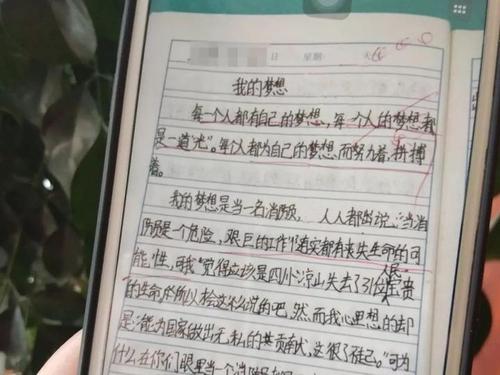 日 星期
我的梦想
每一个人都有自己的梦想,每个人的梦想都
是一道光"。每个人都为自己的梦想而努力着,拼搏
着。
我的梦想是当一名消防员。人人都说,"当消
防员是个危险,艰巨的工作"确实都有丧失生命的可
能性,可我"觉得应该是四川凉山失去了31位宝贵
人民
的生命才所以会这么说的吧,然而我心里想的却
是"能为国家做出无私的共贡献,这很了
可为
什么在你们眼里当一个消防员